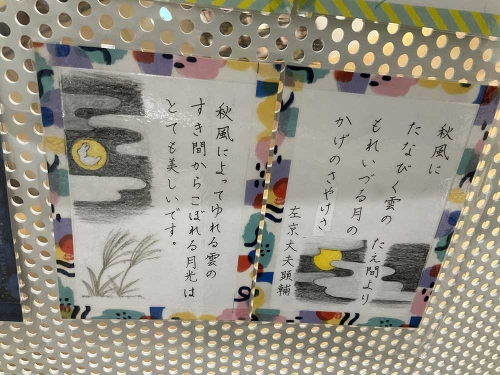 秋風に
たなびく雲の
たえ間より
もれいづる月の
かげのさやけさ
左京大夫顕輔
秋風によってゆれる雲の
すき間からこぼれる月光は
とても美しいです。